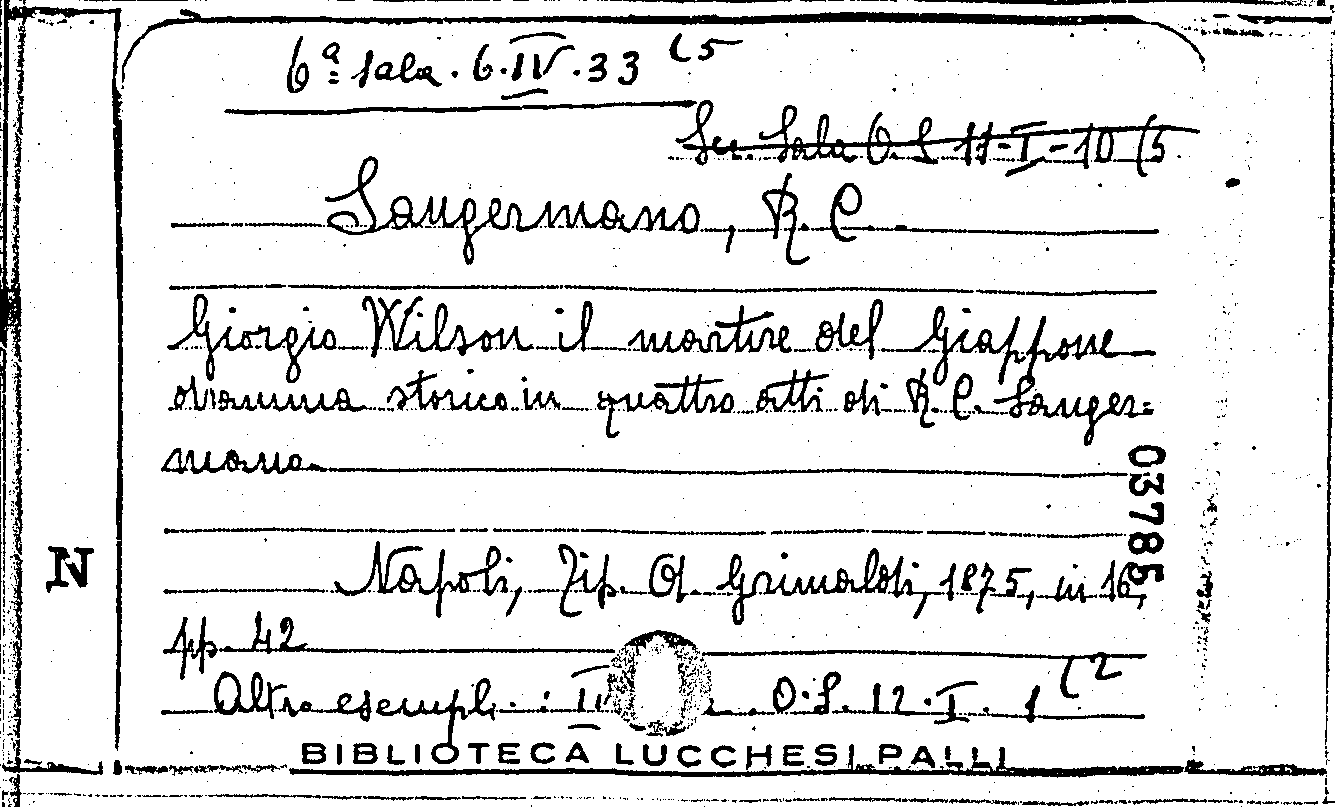 6ª sala. 6.IV.33 (5
Sec. Sala O. S 11-I-10 (5
Sangermano, R. C.
Giorgio Wilson il martire del Giappone
dramma storico in quattro atti di R. C. Sanger=
mano.
03785
N
Napoli, Tip. A. Grimaldi, 1875, in 16,
pp. 42
Altro esempl. : O.S. 12.I.1 (2
BIBLIOTECA LUCCHESI PALLI